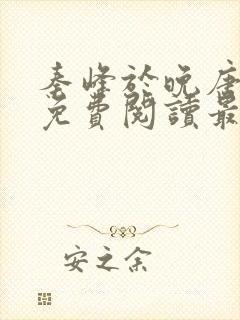 秦峰於晚唐
免費閱讀最
安之余